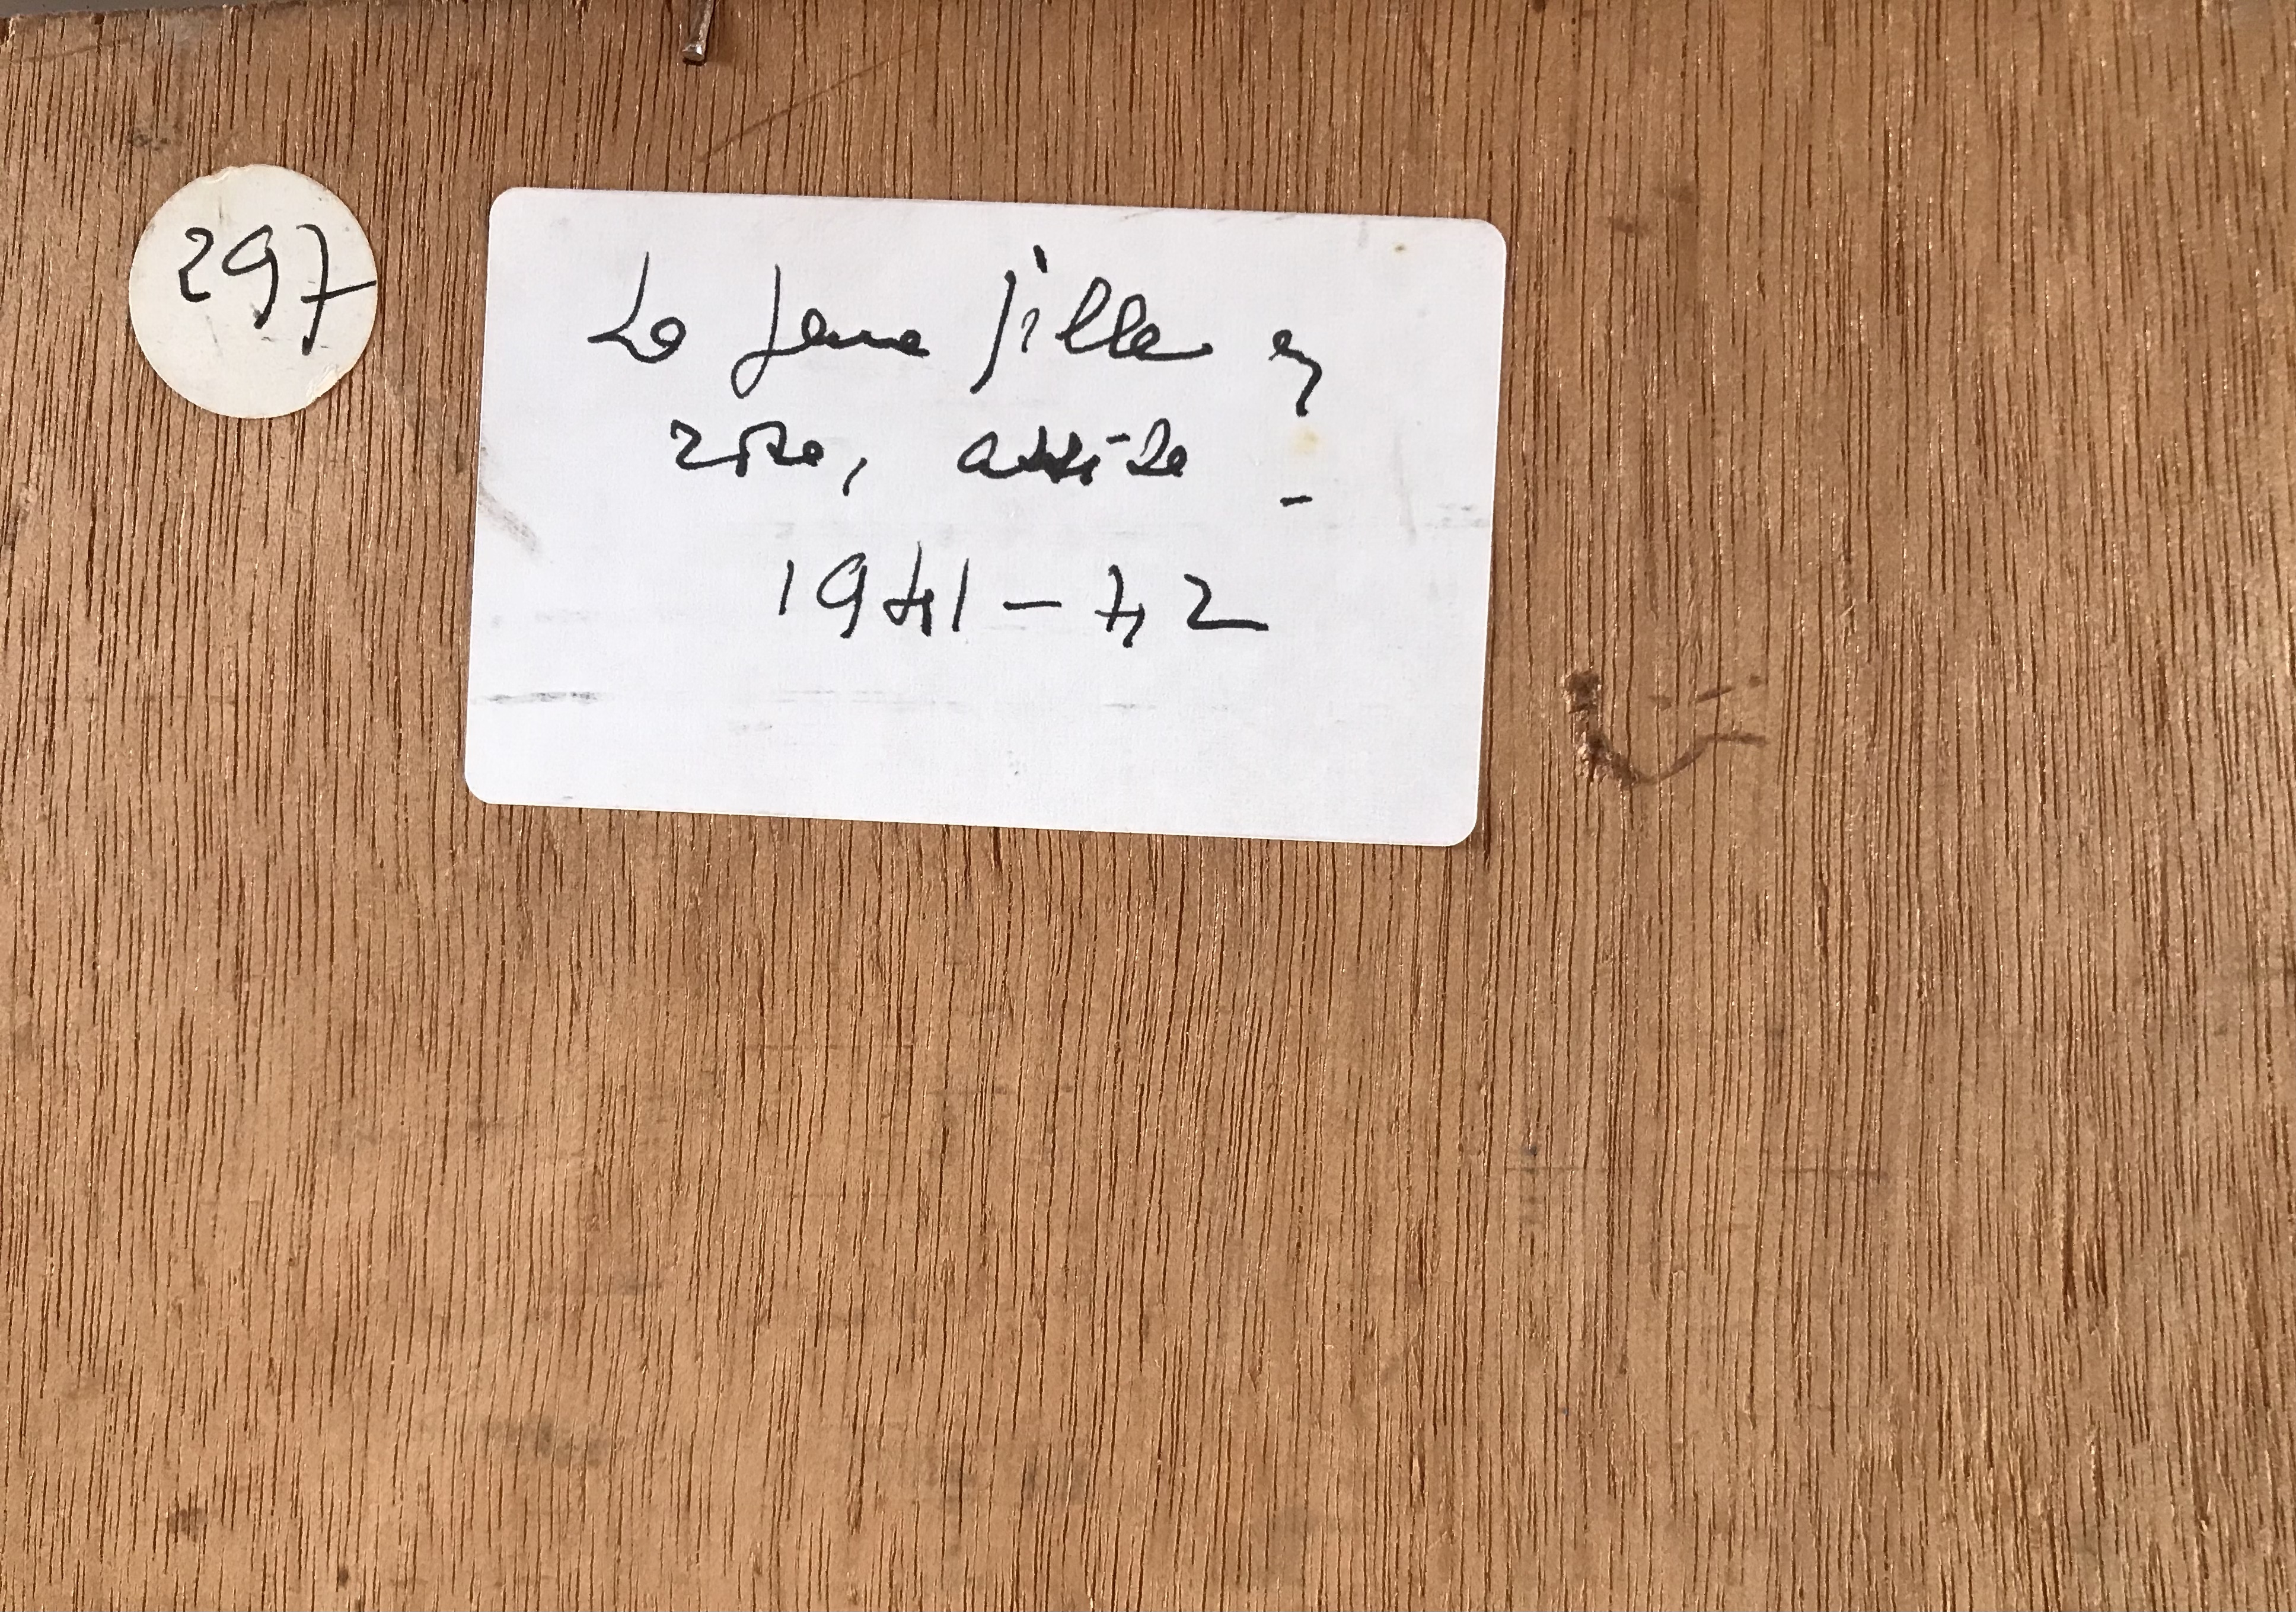 297
La jeune fille en
rose, assise -
1941 - 42